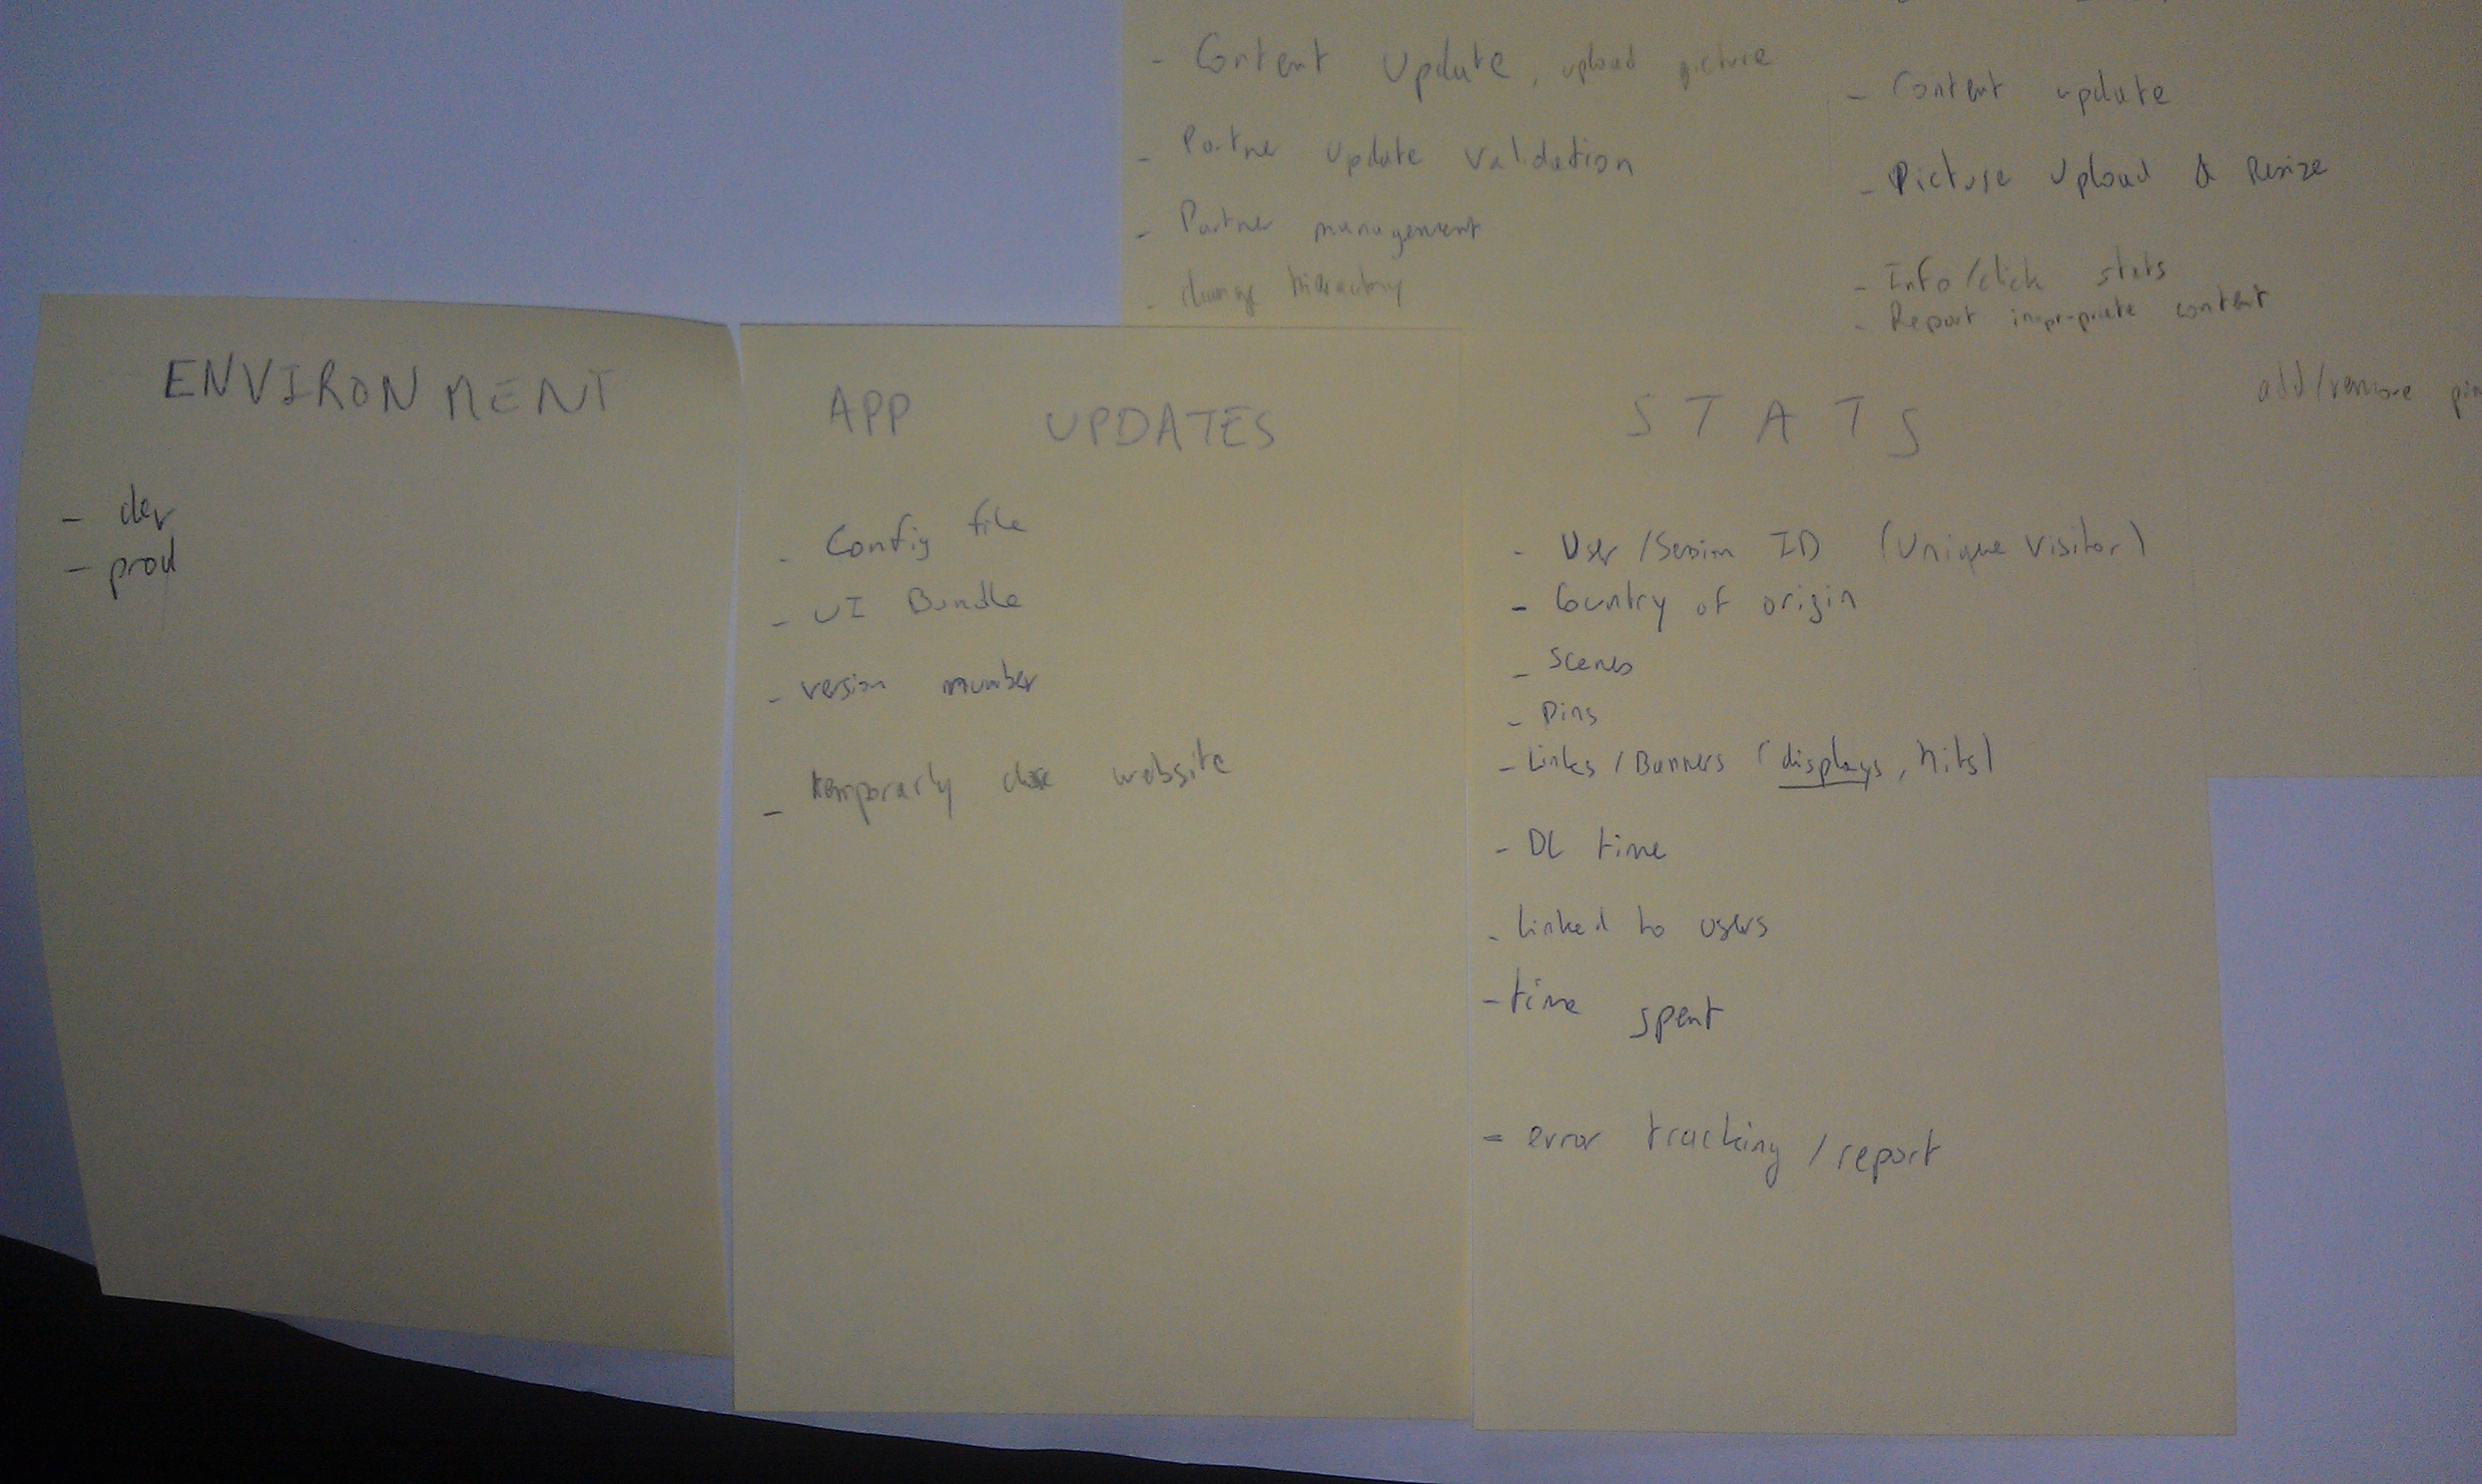 - Content Update, upload picture
- Partner update validation
- Partner management
- change hierarchy
- Content update
- Picture Upload & Resize
- Info/click stats
- Report inapropriate content
add/remove
ENVIRONMENT
- dev
- prod
APP UPDATES
- Config file
- UI Bundle
- version number
- temporarly close website
STATS
- User/Session ID (Unique Visitor)
- Country of origin
- Scenes
- Pins
- Links/Banners (displays, hits)
- DL time
- Linked to users
- time spent
- error tracking/report